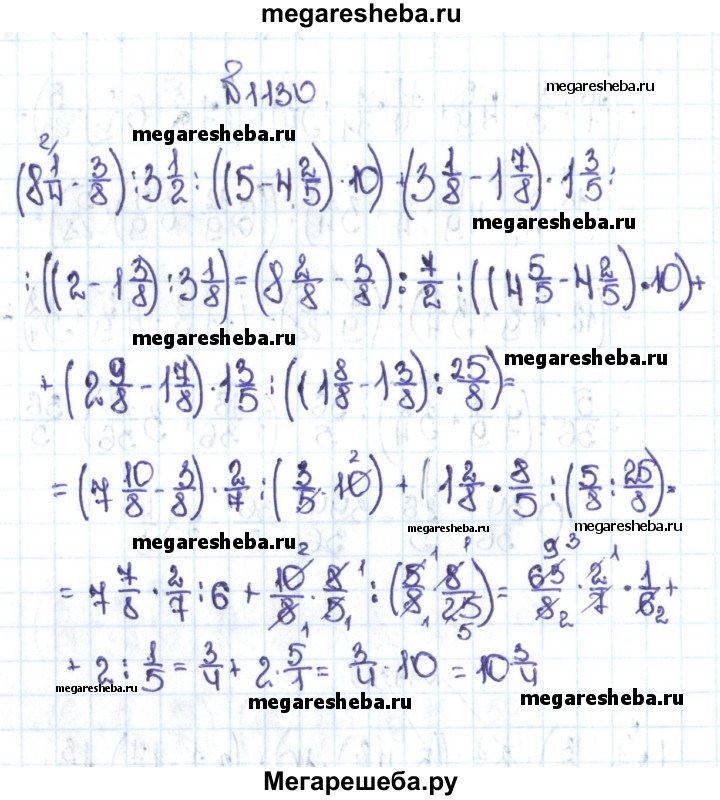 megaresheba.ru
№1130
megaresheba.ru
megaresheba.ru
(8 1/4 - 3/8) : 3 1/2 : ((5 - 4 2/5) · 10) + (3 1/8 - 1 7/8) · 1 3/5 :
megaresheba.ru
: ((2 - 1 3/8) : 3 1/8) = (8 2/8 - 3/8) : 7/2 : ((4 5/5 - 4 2/5) · 10) +
megaresheba.ru
megaresheba.ru
+ (2 9/8 - 1 7/8) · 1 3/5 : ((1 8/8 - 1 3/8) : 25/8) =
megaresheba.ru
= (7 10/8 - 3/8) · 2/7 : (3/5 · 10) + (1 2/8 · 8/5 : (5/8 : 25/8) =
megaresheba.ru
megaresheba.ru
megaresheba.ru
= 7 7/8 · 2/7 : 6 + 10/8 · 8/5 : (5/8 · 8/25) = 63/8 · 2/7 · 1/6 +
+ 2 : 1/5 = 3/4 + 2 · 5/1 = 3/4 · 10 = 10 3/4
megaresheba.ru
megaresheba.ru
megaresheba.ru
Мегарешеба.ру